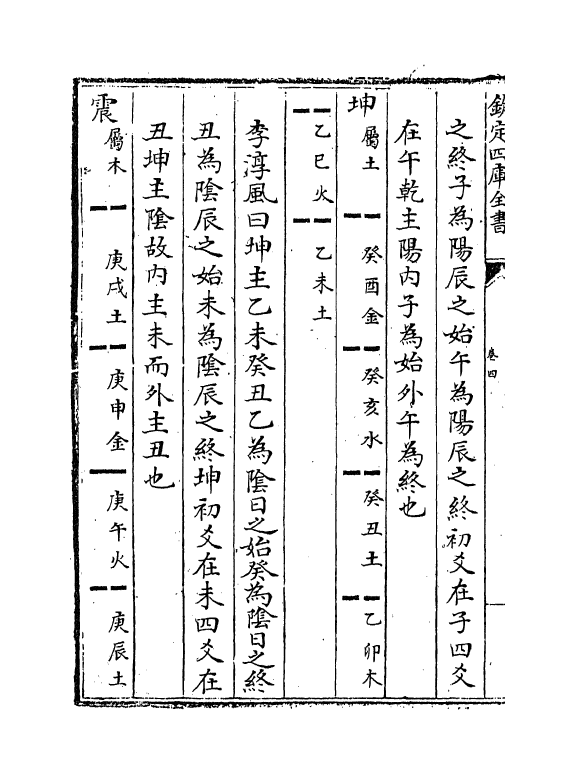 欽定四庫全書
卷四
之終子為陽辰之始午為陽辰之終初爻在子四爻
在午乾主陽内子為始外午為終也
坤屬土 癸酉金 癸亥水 癸丑土 乙卯木
乙巳火 乙未土
李淳風曰坤主乙未癸丑乙為陰日之始癸為陰日之終
丑為陰辰之始未為陰辰之終坤初爻在未四爻在
丑坤主陰故内主未而外主丑也
震屬木 庚戌土 庚申金 庚午火 庚辰土